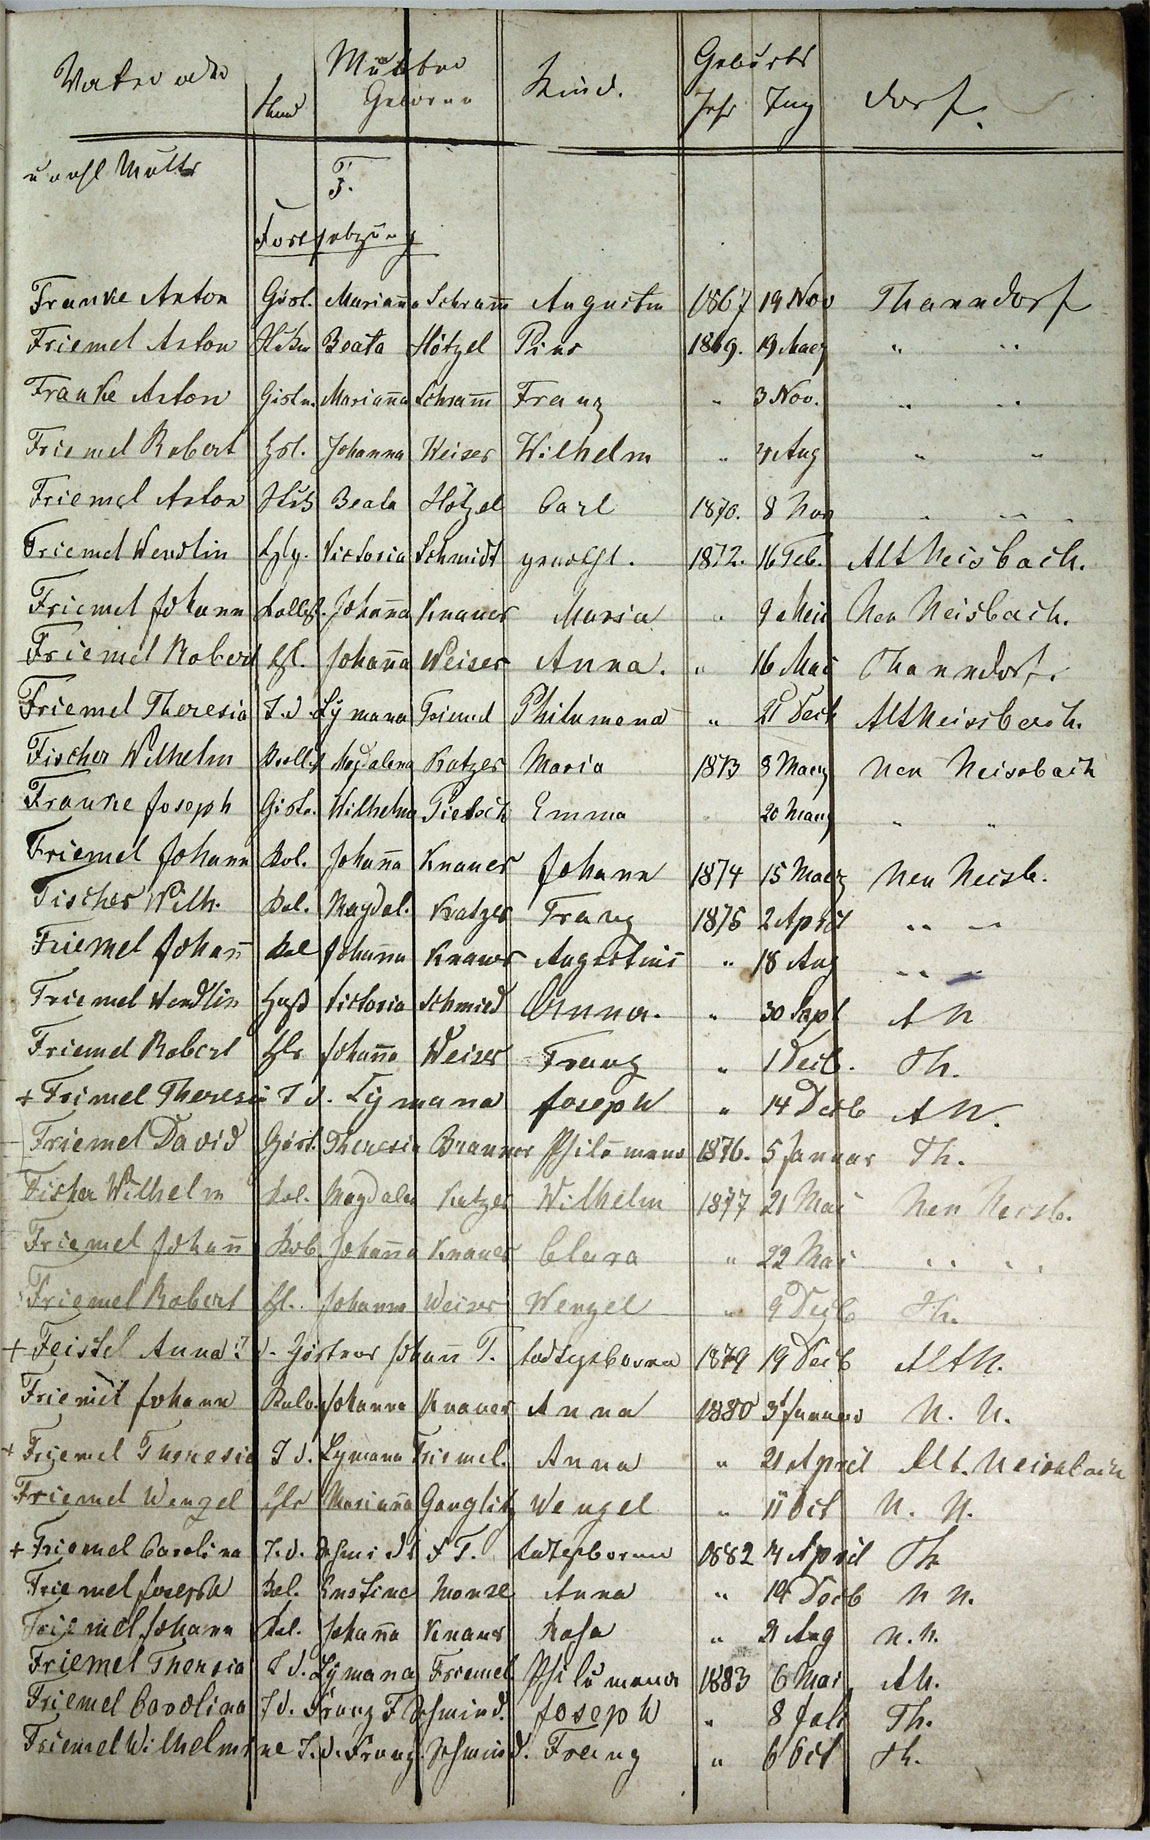 Vater oder Stand Mutter Geborene Kind. Geburts Jahr Tag Dorf.
u auch Mutter F.
Fortsetzung
Franke Anton Gärt. Marianna Schramm Augustin 1867 19 Nov Thanndorf
Friemel Anton Beata Hötzel Pius 1869. 19 Maerz " "
Franke Anton Gärtn. Marianna Schramm Franz " 3 Nov. " "
Friemel Robert Johanna Weiser Wilhelm " Aug " "
Friemel Anton Häs Beata Hötzel Carl 1870. 8 Nov " "
Friemel Wendlin Victoria Schmidt 1872. 16 Feb. Alt Neisbach.
Friemel Johann Johanna Knauer Maria " 9 Neu Neisbach.
Friemel Robert Johanna Weiser Anna. " 16 Mai Thanndorf.
Friemel Theresia T. d. Tÿmana Friemel Philumena " 21 Decb AltNeissbach.
Fischer Wilhelm Magdalena Katzer Maria 1873 3 Maerz Neu Neissbach
Franke Joseph Gärtn. Wilhelma Pietsch Emma " 20 Maerz " "
Friemel Johann Kol. Johanna Knauer Johann 1874 15 Maerz Neu Neisb.
Fischer Wilh. Kol. Magdal. Katzer Franz 1875 2 April " "
Friemel Johann Kol Johanna Knauer Augustinus " 18 Aug " "
Friemel Wendlin Victoria Schmied Anna. " 30 Sept A N
Friemel Robert Johanna Weiser Franz " 1 Decb. Th.
+ Friemel Theresia T d. Tÿmana Joseph " 14 Decb A N.
Friemel David Gärt. Theresia Brauner Philumena 1876. 5 Januar Th.
Fischer Wilhelm Kol. Magdalen Katzer Wilhelm 1877 21 Mai Neu Neisb.
Friemel Johann Kol. Johanna Knauer Clara " 22 Mai " "
Friemel Robert Johanna Weiser Wenzel " 9 Decb Th.
+ Feistel Anna T d. Gärtner Johann F. todtgeboren 1879 19 Decb Alt N.
Friemel Johann Johanna Knauer Anna 1880 3 Januar N. N.
+ Friemel Theresia T d. Tymana Friemel. Anna " 21 April Alt. Neissbach
Friemel Wenzel Marianna Ganglitz Wenzel " 11 Oct N. N.
+ Friemel Carolina T. d. Schmidt F. todtgeboren 1882 14 April Th
Friemel Joseph Kol. Ernstine Monse Anna " 19 Decb N N.
Friemel Johann Kol. Johanna Knauer Rosa " 21 Aug N. N.
Friemel Theresia T d. Tÿmana Friemel Philumena 1883 6 Mai AN.
Friemel Carolina T d. Franz F Schmied. Joseph " 8 Juli Th.
Friemel Wilhelmine T. d. Franz. Schmied. Franz " 6 Oct Th.